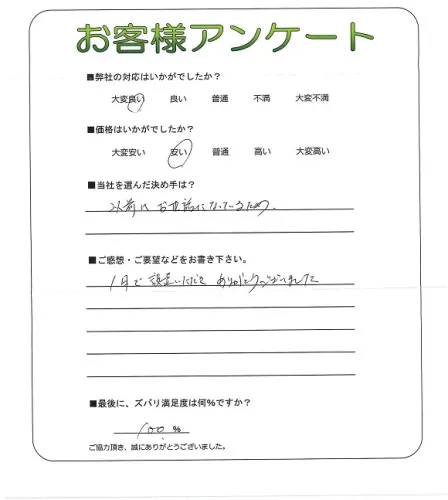 お客様アンケート
■弊社の対応はいかがでしたか？
大変良い 良い 普通 不満 大変不満
■価格はいかがでしたか？
大変安い 安い 普通 高い 大変高い
■当社を選んだ決め手は？
以前にお世話になっているため。
■ご感想・ご要望などをお書き下さい。
いただき ありがとうございました
■最後に、ズバリ満足度は何％ですか？
100 ％
ご協力頂き、誠にありがとうございました。